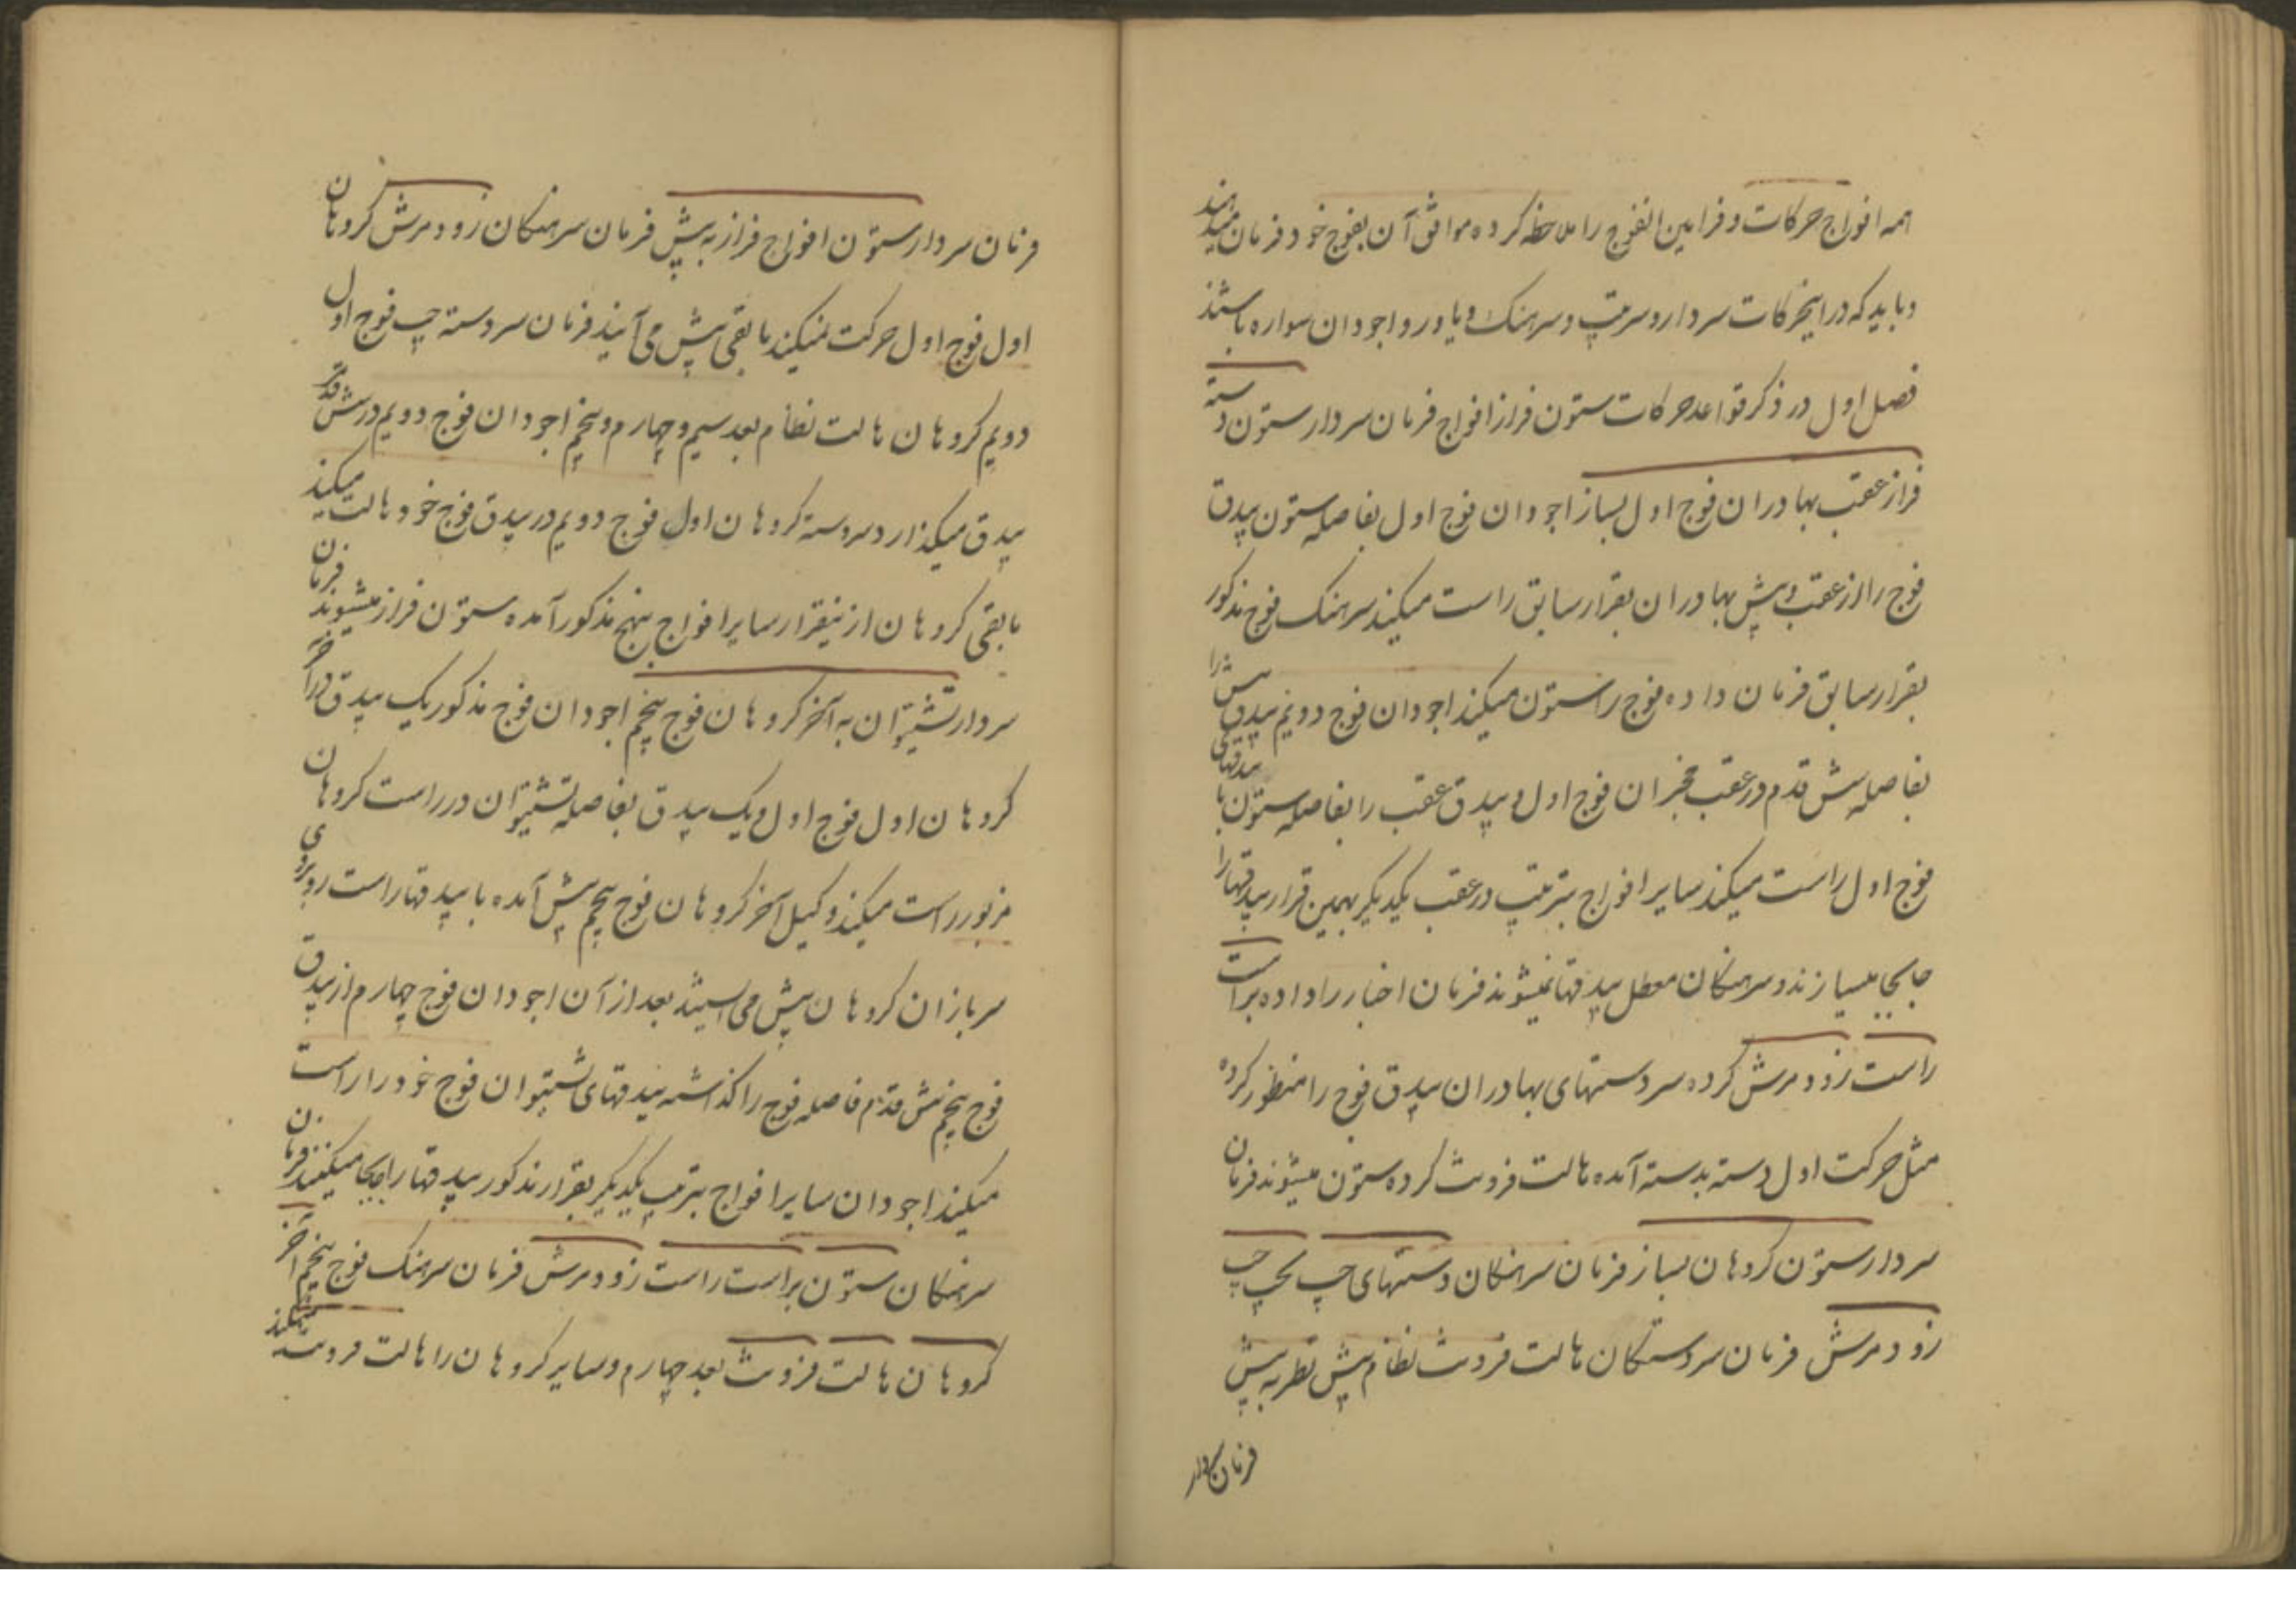 همه افواج حرکات و فرامین الفوج را ملاحظه کرده موافق آن بفوج خود فرمان میدهند
و باید که در اینحرکات سردار و سرتیپ و سرهنک و یاور و اجودان سواره باشند
فصل اول در ذکر قواعد حرکات ستون فراز افواج فرمان سردار ستون دسته
فراز عقب بهادران فوج اول بساز اجودان فوج اول بفاصله ستون بیدق
فوج را از عقب و پیش بهادران بقرار سابق راست میکند سرهنک فوج مذکور
بقرار سابق فرمان داده فوج را ستون میکند اجودان فوج دویم بیدق پیش را
بفاصله شش قدم در عقب مخبران فوج اول و بیدق عقب را بفاصله ستون با بیدقهای
فوج اول راست میکند سایر افواج بترتیب در عقب یکدیکر بهمین قرار بیدقها را
جابجا میسازند و سرهنکان معطل بیدقها نمیشوند فرمان اخبار را داده براست
راست زود مرش کرده سردستهای بهادران بیدق فوج را منظور کرده
مثل حرکت اول دسته بدسته آمده هالت فرونت کرده ستون میشوند فرمان
سردار ستون کروهان بساز فرمان سرهنکان دستهای چپ بچپ چپ
زود مرش فرمان سردستکان هالت فرونت نظام پیش نظر به پیش
فرمان سردار
فرمان سردار ستون افواج فراز به پیش فرمان سرهنکان زود مرش کروهان
اول فوج اول حرکت نمیکند مابقی پیش می آیند فرمان سردسته چپ فوج اول
دویم کروهان هالت نظام بعد سیم و چهارم و پنجم اجودان فوج دویم در شش قدم
بیدق میکذارد سردسته کروهان اول فوج دویم در بیدق فوج خود هالت میکند
مابقی کروهان از نیقرار سایر افواج بنهج مذکور آمده ستون فراز میشوند فرمان
سردار تشتیوان به آخر کروهان فوج پنجم اجودان فوج مذکور یک بیدق در آخر
کروهان اول فوج اول و یک بیدق بفاصله تشتیوان در راست کروهان
مزبور راست میکند وکیل آخر کروهان فوج پنجم پیش آمده با بیدقها راست روبروی
سربازان کروهان پیش می ایستد بعد از آن اجودان فوج چهارم از بیدق
فوج پنجم شش قدم فاصله فوج را کذاشته بیدقهای تشتیوان فوج خود را راست
میکند اجودان سایر افواج بترتیب یکدیکر بقرار مذکور بیدقها را جابجا میکنند فرمان
سرهنکان ستون براست راست زود مرش فرمان سرهنک فوج پنجم آخر
کروهان هالت فرونت بعد چهارم و سایر کروهان را هالت فرونت میکند